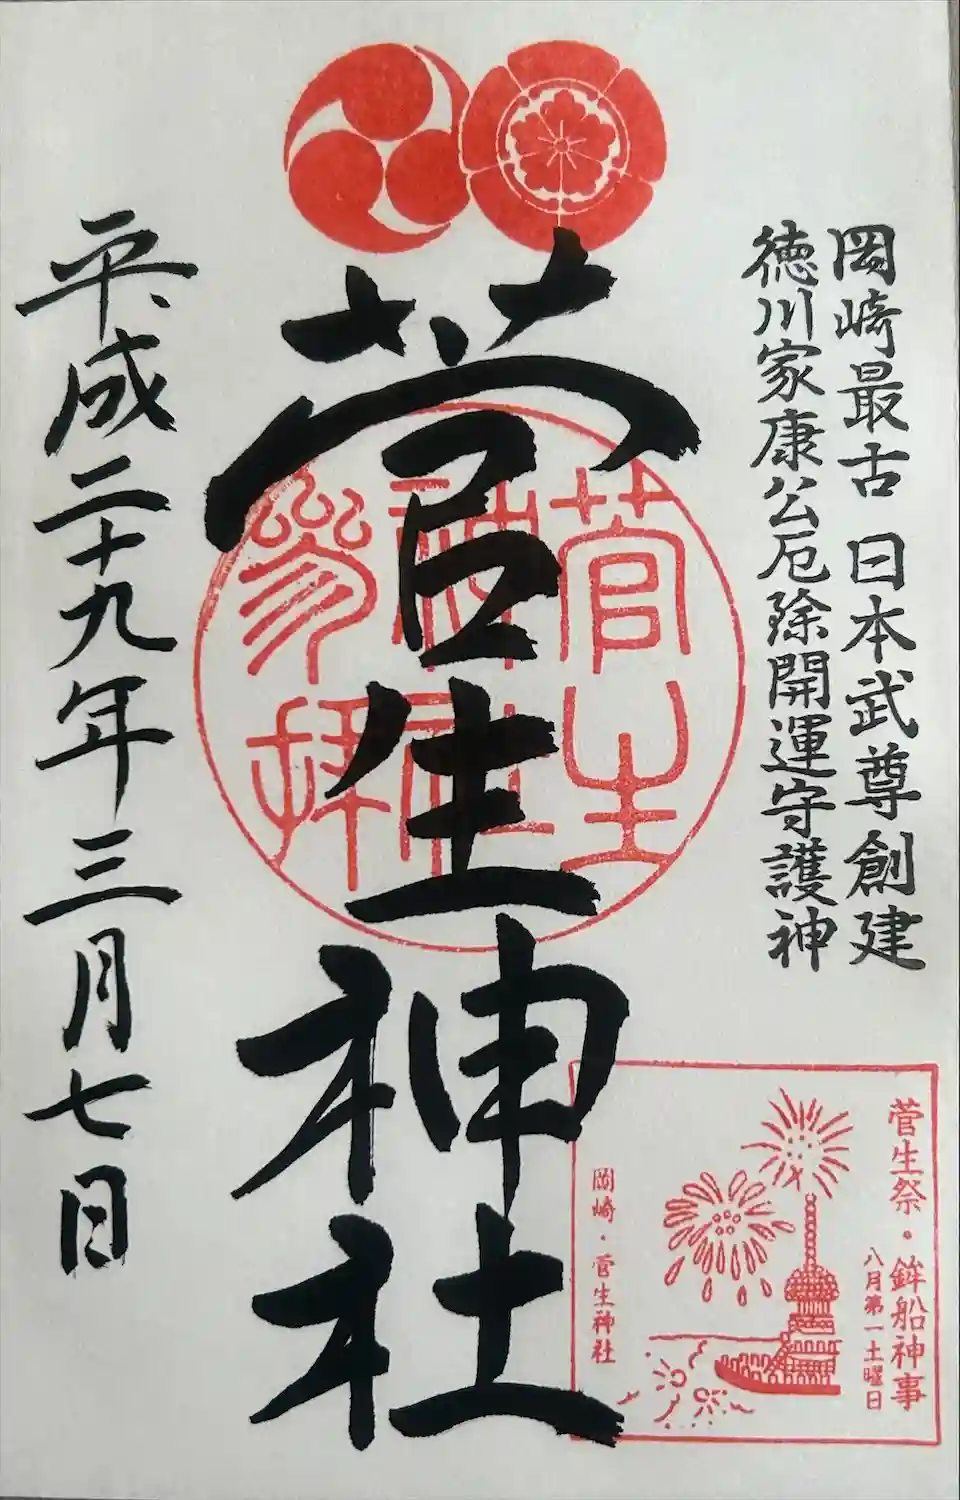 岡崎最古 日本武尊創建
徳川家康公厄除開運守護神
菅生神社
菅生
神社
参拝
平成二十九年三月七日
菅生祭・鉾船神事
八月第一土曜日
岡崎・菅生神社